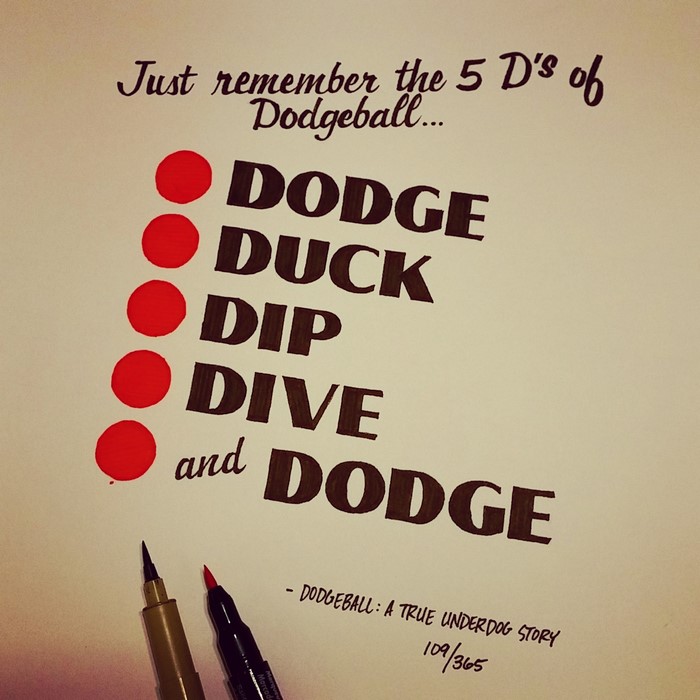 Just remember the 5 D's of
Dodgeball...
DODGE
DUCK
DIP
DIVE
and DODGE
- DODGEBALL: A TRUE UNDERDOG STORY
109/365